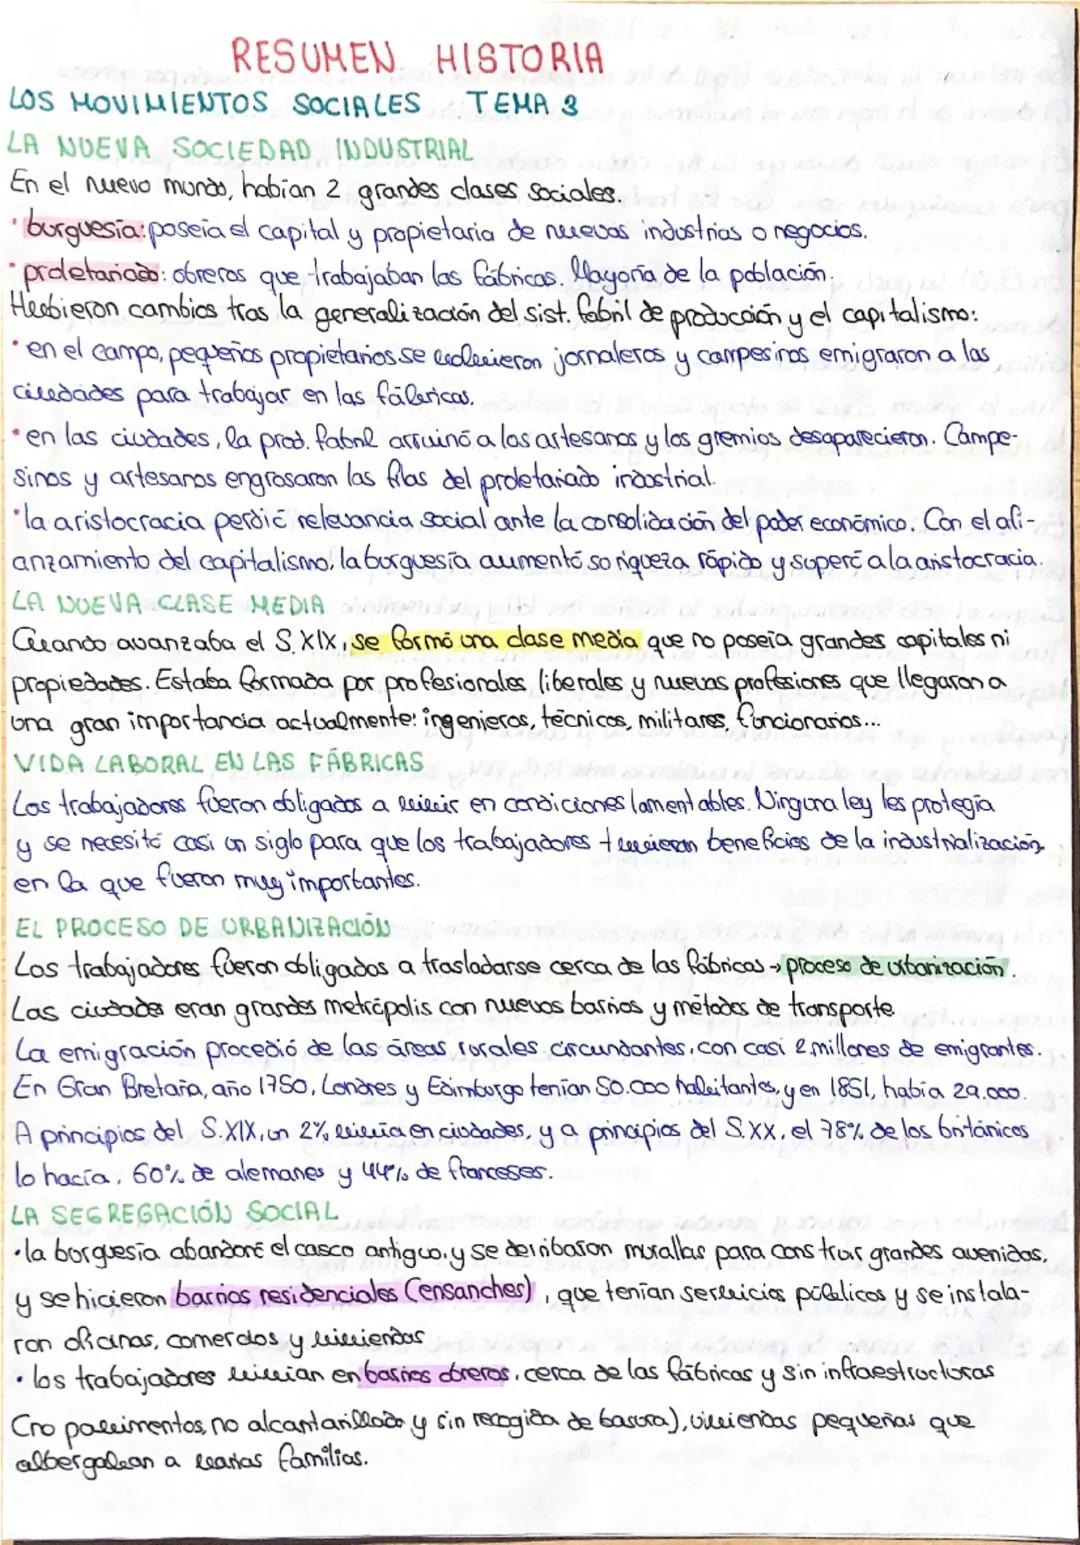 RESUMEN HISTORIA
LOS MOVIMIENTOS SOCIALES TEMA 3
LA NUEVA SOCIEDAD INDUSTRIAL
En el nuevo mundo, habían 2 grandes clases sociales.
· burguesía: poseía el capital y propietaria de nuevas industrias o negocios.
· proletariado: obreros que trabajaban las fábricas. Mayoría de la población.
Hubieron cambios tras la generalización del sist. fabril de producción y el capitalismo:
· en el campo, pequeños propietarios se volvieron jornaleros y campesinos emigraron a las
ciudades para trabajar en las fábricas.
· en las ciudades, la prod. fabril arruinó a los artesanos y los gremios desaparecieron. Campe-
sinos y artesanos engrosaron las filas del proletariado industrial.
· la aristocracia perdió relevancia social ante la consolidación del poder económico. Con el afi-
anzamiento del capitalismo, la burguesía aumentó su riqueza rápido y superó a la aristocracia.
LA NUEVA CLASE MEDIA
Cuando avanzaba el S.XIX, se formó una clase media que no poseía grandes capitales ni
propiedades. Estaba formada por profesionales liberales y nuevas profesiones que llegaron a
una gran importancia actualmente: ingenieros, técnicos, militares, funcionarios...
VIDA LABORAL EN LAS FÁBRICAS
Los trabajadores fueron obligados a vivir en condiciones lamentables. Ninguna ley les protegía
y se necesitó casi un siglo para que los trabajadores tuvieran beneficios de la industrialización
en la que fueron muy importantes.
EL PROCESO DE URBANIZACIÓN
Los trabajadores fueron obligados a trasladarse cerca de las fábricas → proceso de urbanización.
Las ciudades eran grandes metrópolis con nuevos barrios y métodos de transporte.
La emigración procedió de las áreas rurales circundantes, con casi 2 millones de emigrantes.
En Gran Bretaña, año 1750, Londres y Edimburgo tenían 50.000 habitantes, y en 1851, había 29.000.
A principios del S.XIX, un 2% vivía en ciudades, y a principios del S.XX, el 78% de los británicos
lo hacía, 60% de alemanes y 44% de franceses.
LA SEGREGACIÓN SOCIAL
· la burguesía abandonó el casco antiguo, y se derribaron murallas para construir grandes avenidas,
y se hicieron barrios residenciales (ensanches), que tenían servicios públicos y se instala-
ron oficinas, comercios y viviendas
· los trabajadores vivían en barrios obreros, cerca de las fábricas y sin infraestructuras
(no pavimentos, no alcantarillado y sin recogida de basura), viviendas pequeñas que
albergaban a varias familias.